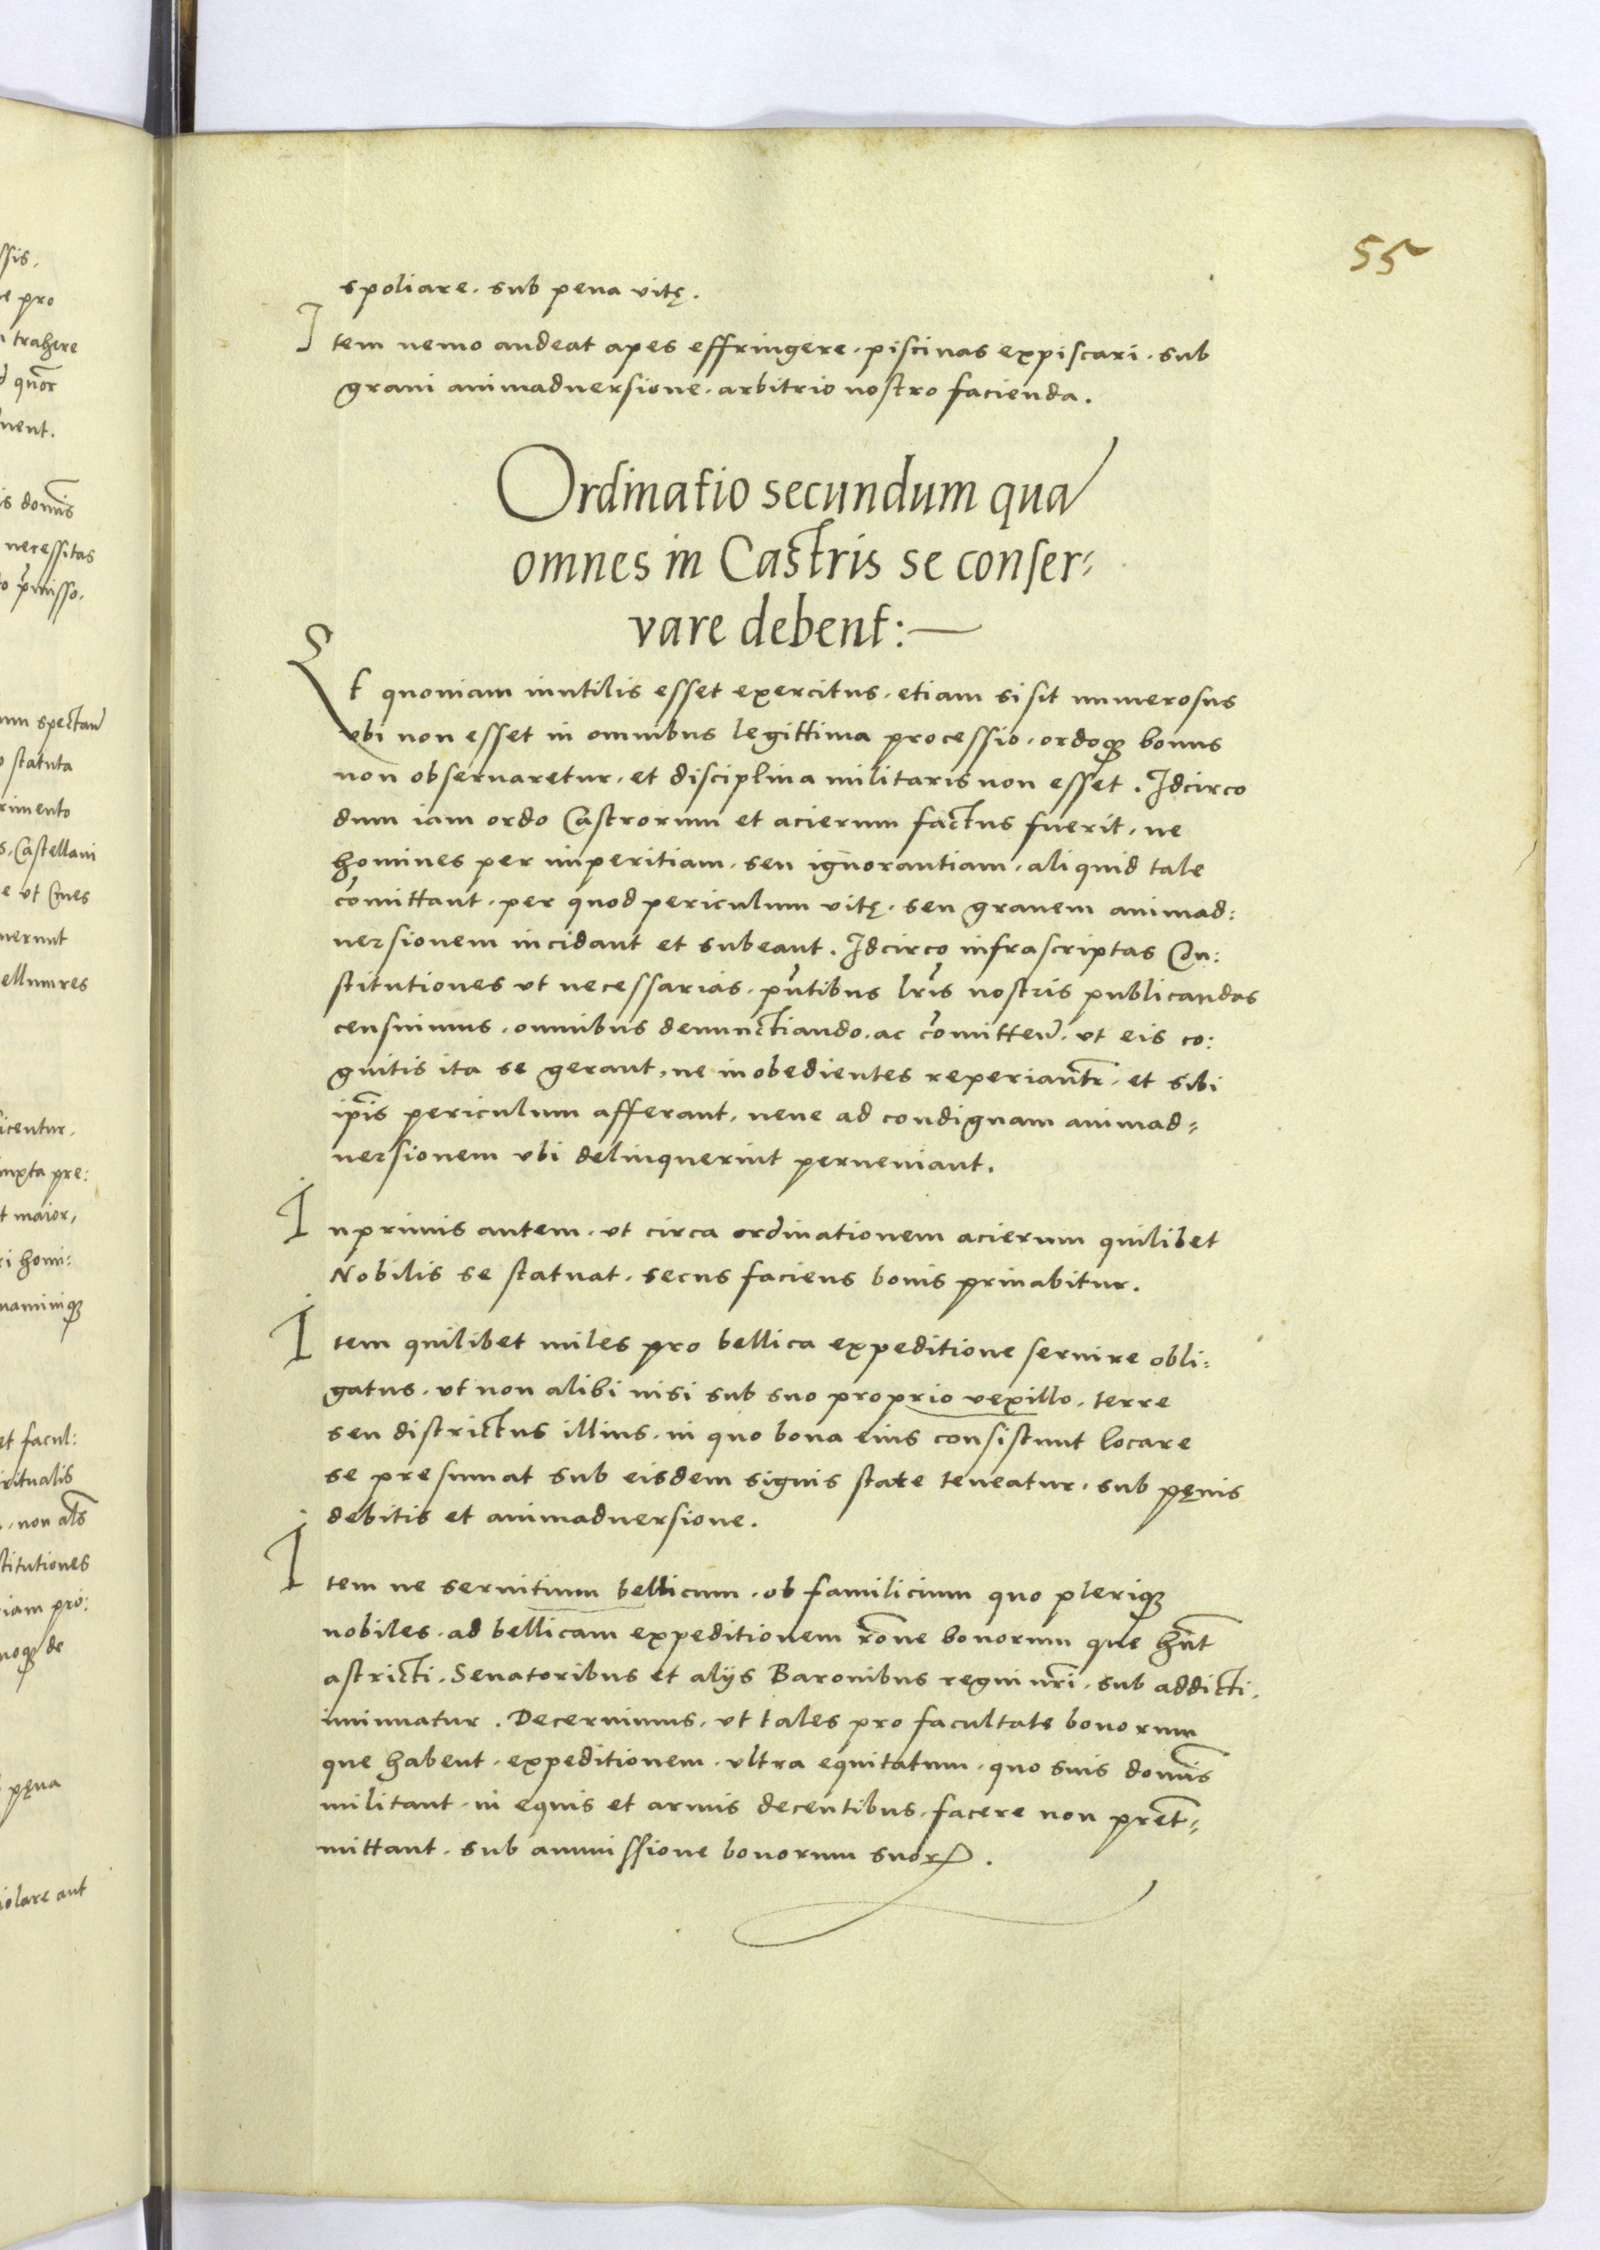 55
spoliare. sub pena vitę.
Item nemo audeat apes effringere. piscinas expiscari. sub
graui animaduersione. arbitrio nostro facienda.
Ordinatio secundum qua
omnes in Castris se conser=
vare debent:—
Et quoniam inutilis esset exercitus. etiam si sit numerosus
vbi non esset in omnibus legittima processio. ordoqꝫ bonus
non obseruaretur. et disciplina militaris non esset. Idcirco
dum iam ordo Castrorum et acierum factus fuerit. ne
homines per imperitiam. seu ignorantiam. aliquid tale
cōmittant. per quod periculum vitę. seu grauem animad:
uersionem incidant et subeant. Idcirco infrascriptas Con:
stitutiones vt necessarias. pñtibus lr̃is nostris publicandas
censuimus. omnibus denunctiando. ac cōmitteñ. vt eis co:
gnitis ita se gerant. ne inobedientes reperiantr̃. et sibi
ip̃is periculum afferant. neue ad condignam animad=
uersionem vbi delinquerint perueniant.
Inprimis autem. vt circa ordinationem acierum quilibet
Nobilis se statuat. secus faciens bonis priuabitur.
Item quilibet miles pro bellica expeditione seruire obli=
gatus. vt non alibi nisi sub suo proprio vexillo. terre
seu districtus illius. in quo bona eius consistunt locare
se presumat sub eisdem signis stare teneatur. sub pęnis
debitis et animaduersione.
Item ne seruitium bellicum. ob familicium quo pleriqꝫ
nobiles. ad bellicam expeditionem rõne bonorum que hñt
astricti. Senatoribus et alijs Baronibus regni nr̃i. sub addicti.
iminuatur. Decernimus. vt tales pro facultate bonorum
que habent. expeditionem. vltra equitatum. quo suis domĩs
militant. in equis et armis decentibus. facere non preter̃=
mittant. sub ammissione bonorum suorꝝ.